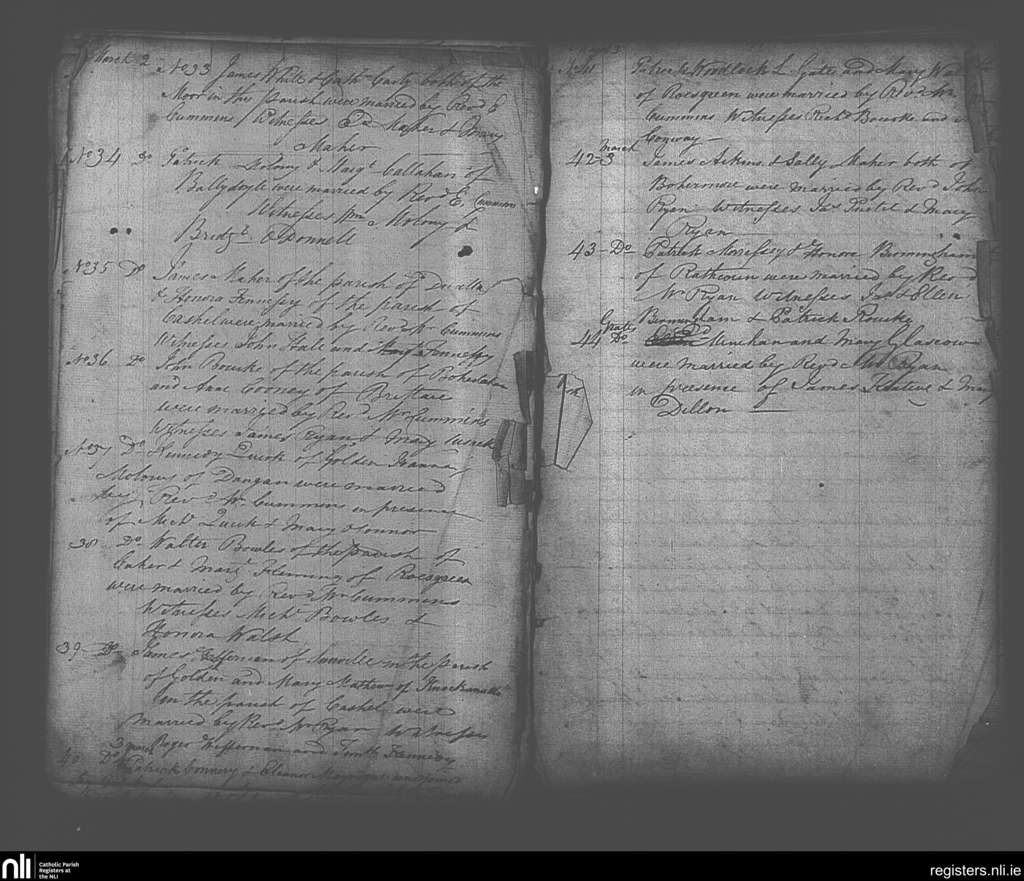 March 2
No 33 James White & Cathe Carty both of the
Moor in this Parish were married by Revd E
Cummins / Witnesses Ed Maher & Mary
Maher
No 34 Do Patrick Molony & Margt Callahan of
Ballydoyle were married by Revd E. Cummins
Witnesses Wm Molony &
Bridgt O'Donnell
No 35 Do James Maher of the parish of
& Honora Fennessy of the parish of
Cashel were married by Revd Mr Cummins
Witnesses John Hall and Fennessy
No 36 Do John Bourke of the parish of Boherlahan
and Anne Tooney of
were married by Revd Mr Cummins
Witnesses James Ryan & Mary
No 37 Do Kennedy Quirk of Golden
Molony of Dangan were married
by Revd Mr Cummins in presence
of Michl Quirk & Mary O'Connor
38 Do Walter Bowles of the parish of
Caher & Margt Fleming of Rocsgreen
were married by Revd Mr Cummins
Witnesses Michl Bowles &
Honora Walsh
39 Do James Heffernan of in the parish
of Golden and Mary Mathews of
in the parish of Cashel were
married by Revd Mr Ryan Witnesses
Roger Heffernan and Kennedy
40 Do 3 March Patrick Connery & Eleanor
Patrick Woodlock & Gates and Mary
of Rocsgreen were married by Revd Mr
Cummins Witnesses Richd Bourke and
Conway
March
42-3 James Askins & Sally Maher both of
Bohermore were married by Revd John
Ryan Witnesses Jas & Mary
Ryan
43-Do Patrick Morrissey & Honora Bermingham
of Rathcoun were married by Revd
Mr Ryan Witnesses Jas & Ellen
Bermingham & Patrick Rourke
44 Do Minehan and Mary Glascow
were married by Revd Mr Ryan
in presence of James & Mary
Dillon
nli
Catholic Parish
Registers at
the NLI
registers.nli.ie